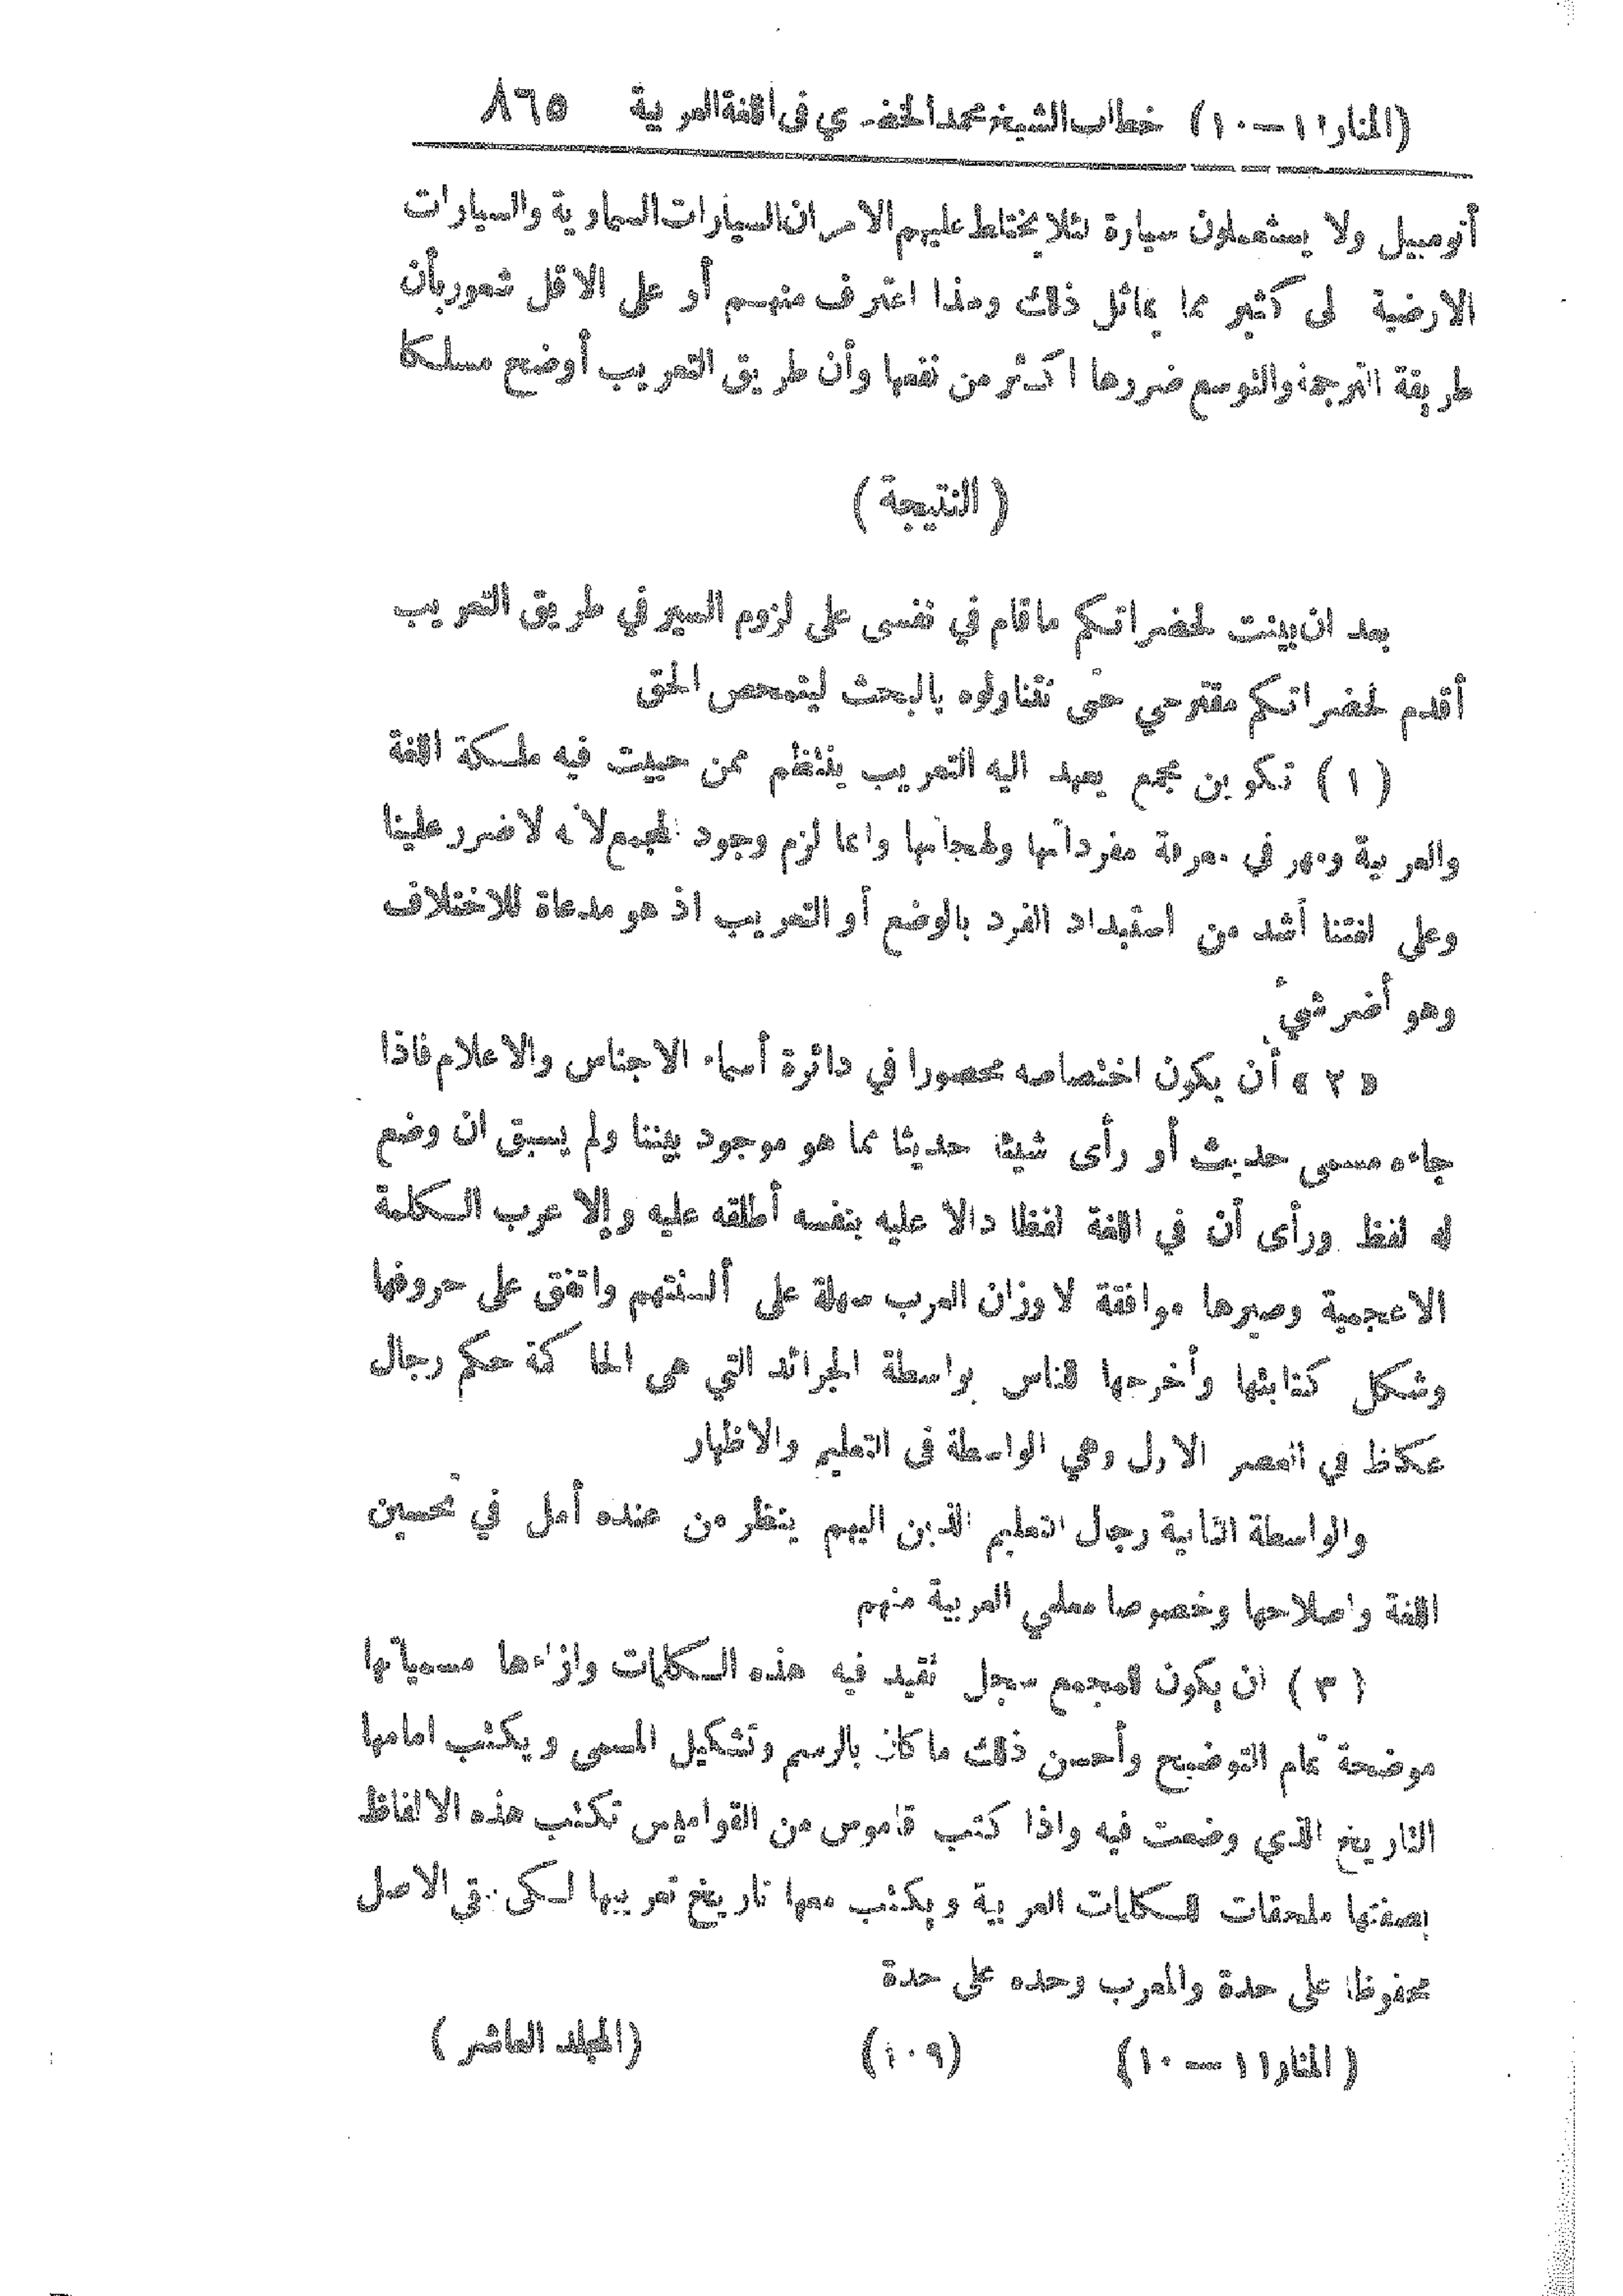 (المنار ١١ — ١٠) خطاب الشيخ محمد الخضري في اللغة العربية ٨٦٥
أتومبيل ولا يستعملون سيارة لئلا يختلط عليهم الامر ان السيارات السماوية والسيارات
الارضية لى كثير مما يماثل ذلك وهذا اعترف منهم أو على الاقل شعور بأن
طريقة الترجمة والتوسع ضررها اكثر من نفعها وأن طريق التعريب أوضح مسلكا
( النتيجة )
بعد ان بينت لحضراتكم ما قام في نفسى على لزوم السير في طريق التعريب
أقدم لحضراتكم مقترحي حتى تتناولوه بالبحث ليتمحص الحق
( ١ ) تكوين مجمع يعهد اليه التعريب ينتظم ممن حييت فيه ملكة اللغة
والعربية ومهر في معرفة مفرداتها ولهجاتها وانما لزم وجود المجمع لأنه لا ضرر علينا
وعلى لغتنا أشد من استبداد الفرد بالوضع أو التعريب اذ هو مدعاة للاختلاف
وهو أضر شيء
« ٢ » أن يكون اختصاصه محصورا في دائرة أسماء الاجناس والاعلام فاذا
جاءه مسمى حديث أو رأى شيئا حديثا مما هو موجود بيننا ولم يسبق ان وضع
له لفظ ورأى أن في اللغة لفظا دالا عليه بنفسه أطلقه عليه وإلا عرب الكلمة
الاعجمية وصيرها موافقة لاوزان العرب سهلة على ألسنتهم واتفق على حروفها
وشكل كتابتها وأخرجها للناس بواسطة الجرائد التي هى الحاكمة حكم رجال
عكاظ في العصر الاول وهي الواسطة فى التعليم والاظهار
والواسطة الثانية رجال التعليم الذين اليهم ينظر من عنده أمل في تحسين
اللغة واصلاحها وخصوصا معلمي العربية منهم
( ٣ ) ان يكون للمجمع سجل تقيد فيه هذه الكلمات وازاءها مسمياتها
موضحة تمام التوضيح وأحسن ذلك ما كان بالرسم وتشكيل المسمى ويكتب امامها
التاريخ الذي وضعت فيه واذا كتب قاموس من القواميس تكتب هذه الالفاظ
بصفتها ملحقات للكلمات العربية ويكتب معها تاريخ تعريبها لكى يبقى الاصل
محفوظا على حدة والمعرب وحده على حدة
(المنار ١١ — ١٠) (١٠٩) (المجلد العاشر)